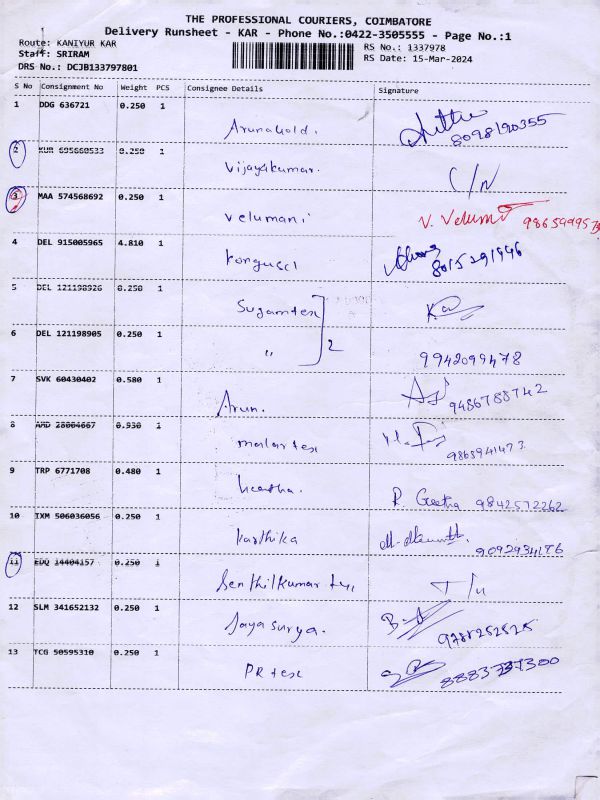 THE PROFESSIONAL COURIERS, COIMBATORE
Delivery Runsheet - KAR - Phone No.:0422-3505555 - Page No.:1
Route: KANIYUR KAR
RS No.: 1337978
Staff: SRIRAM
RS Date: 15-Mar-2024
DRS No.: DCJB133797801
S No Consignment No Weight PCS Consignee Details Signature
1 DDG 636721 0.250 1
Arunagold. 8098190355
2 KUR 605660533 0.250 1
Vijayakumar. C/N
3 MAA 574568692 0.250 1
Velumani V. Velum
4 DEL 915005965 4.810 1
Kongusci 8015291996
5 DEL 121198926 0.250 1
Sugamtex
6 DEL 121198905 0.250 1
" 2 9942099478
7 SVK 60430402 0.580 1
Arun. 9486788742
8 AMD 28004667 0.930 1
malar tex 9865941473
9 TRP 6771708 0.480 1
R Geetha 9842572262
10 IXM 506036056 0.250 1
Karthika 9092934176
11 EDQ 14404157 0.250 1
Senthilkumar
12 SLM 341652132 0.250 1
Jayasurya.
13 TCG 50595310 0.250 1
PR tex